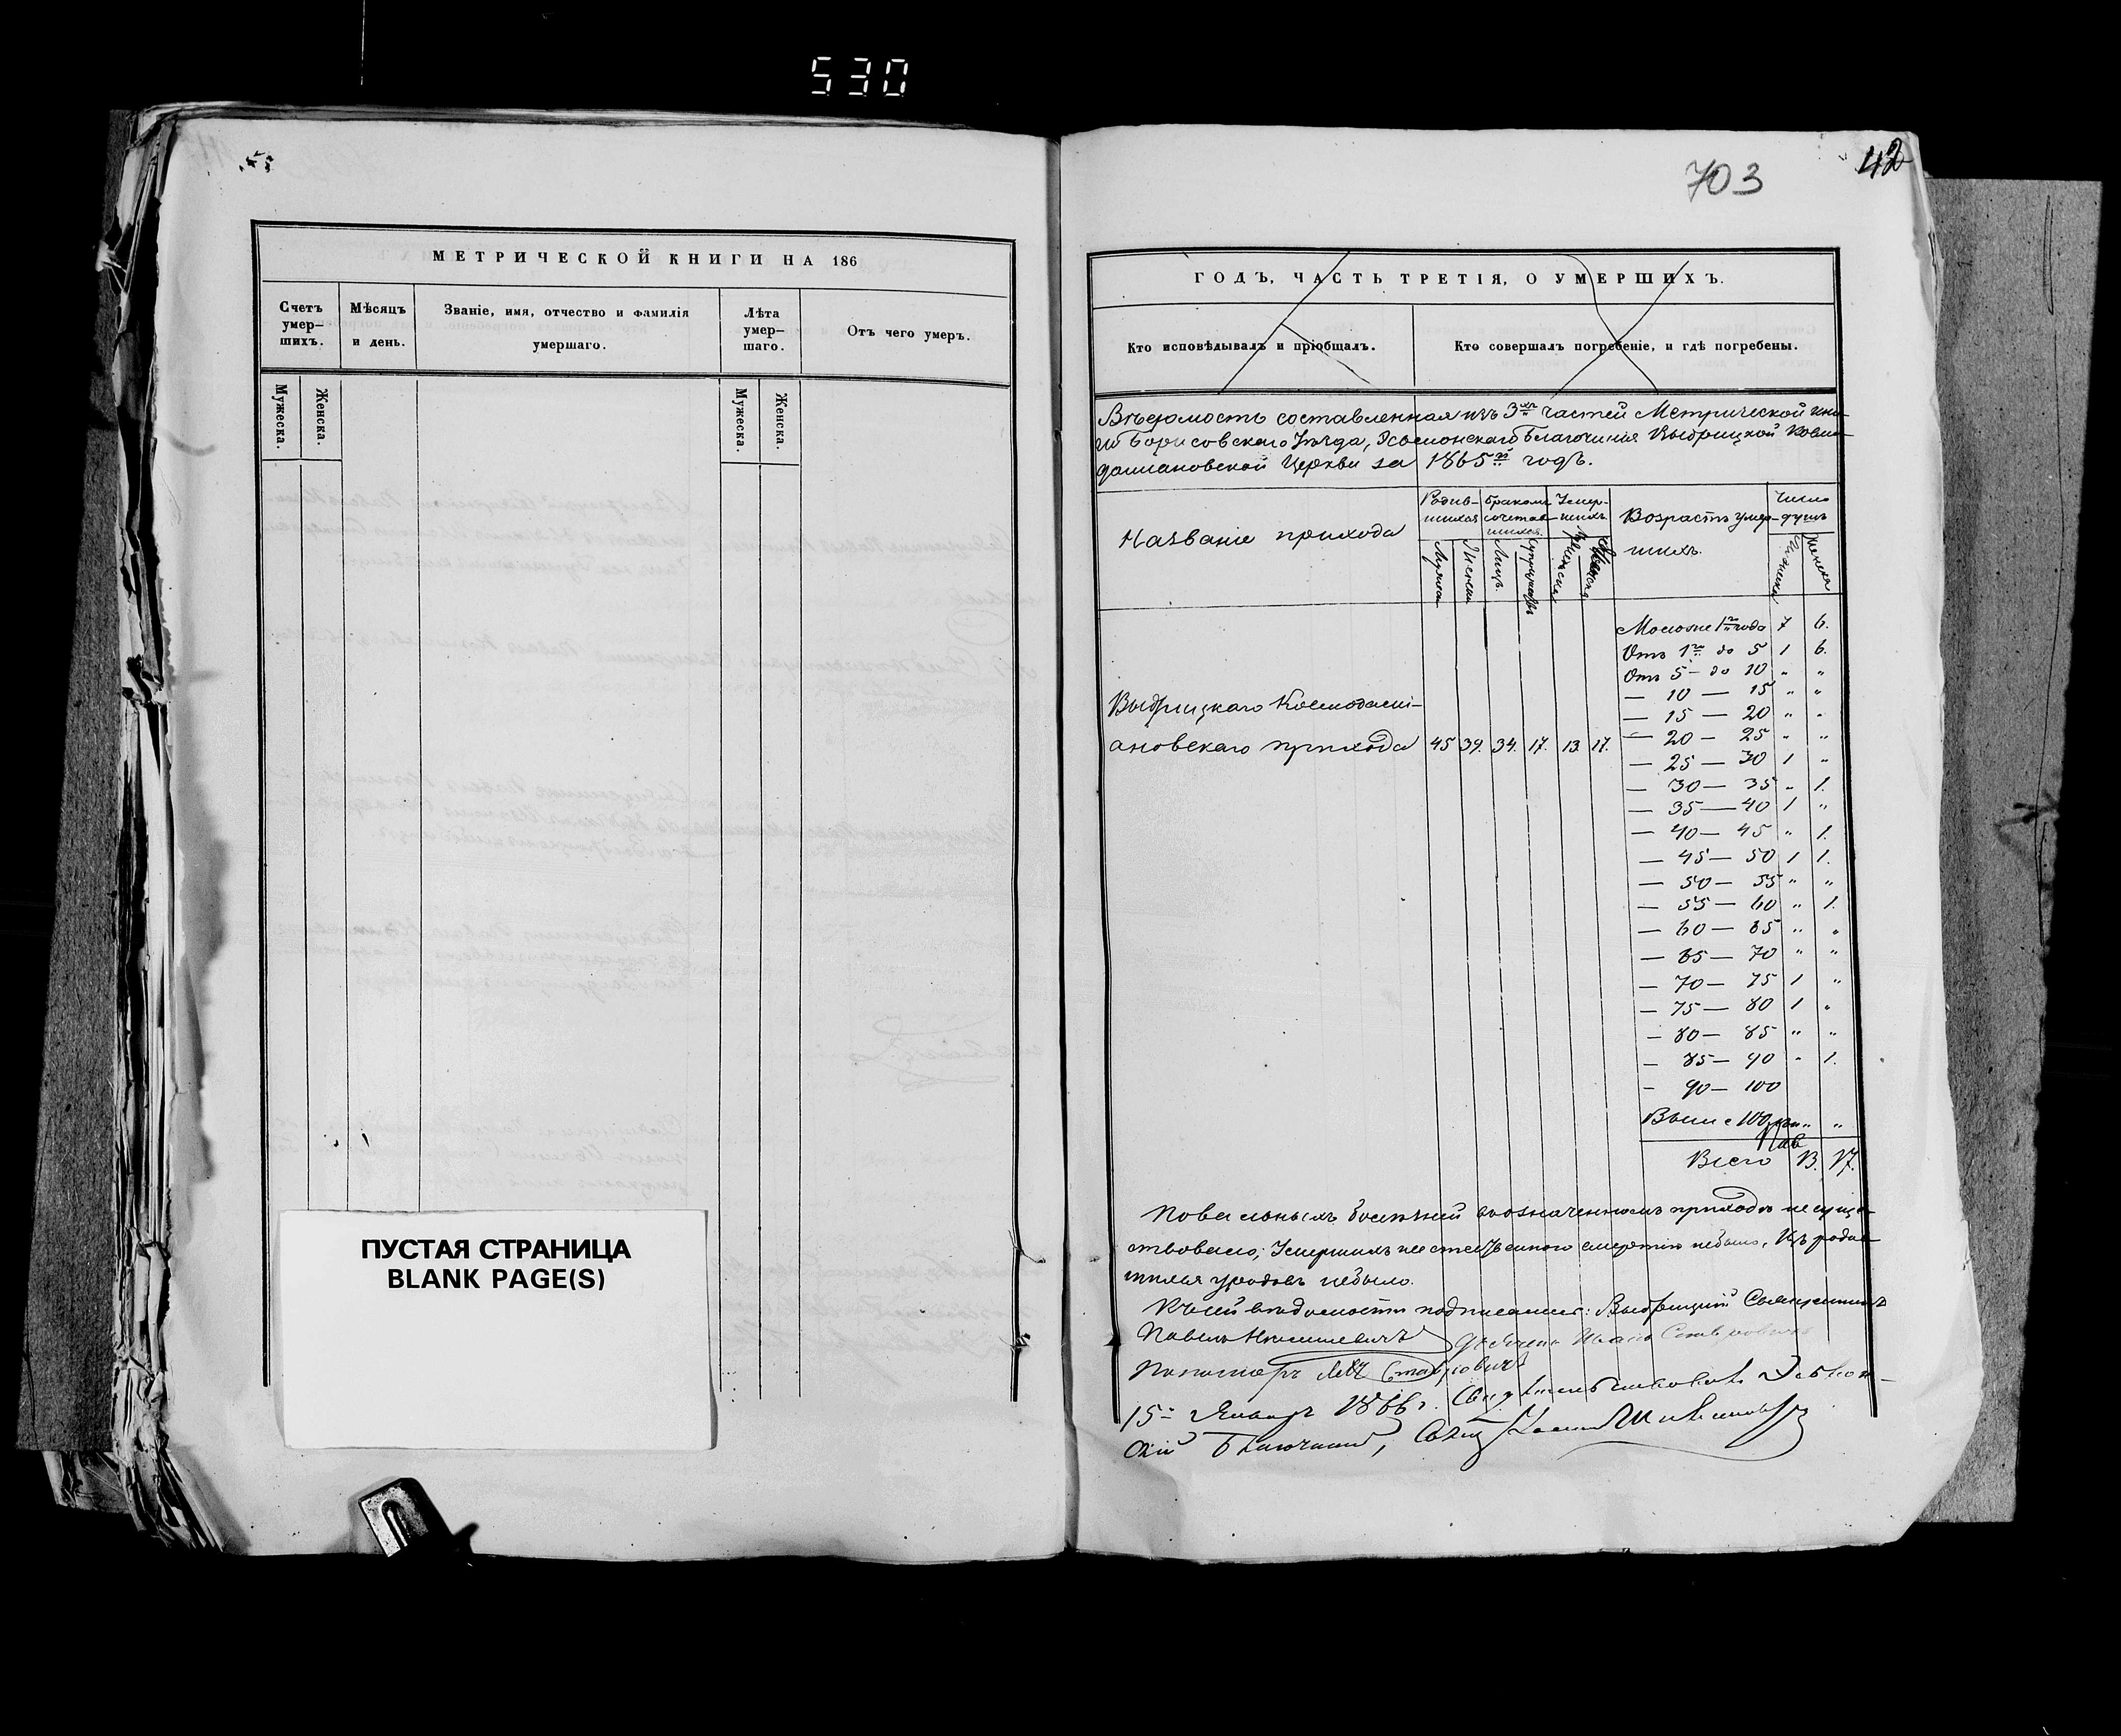 530
703
42
МЕТРИЧЕСКОЙ КНИГИ НА 186
Счетъ умер-шихъ.
Мѣсяцъ и день.
Званіе, имя, отчество и фамилія умершаго.
Лѣта умер-шаго.
Отъ чего умеръ.
Мужеска. Женска.
Мужеска. Женска.
ПУСТАЯ СТРАНИЦА
BLANK PAGE(S)
ГОДЪ, ЧАСТЬ ТРЕТІЯ, О УМЕРШИХЪ.
Кто исповѣдывалъ и пріобщалъ.
Кто совершалъ погребеніе, и гдѣ погребены.
Вѣдомость составленная изъ 3хъ частей Метрической кни-
ги Борисовскаго Уѣзда, Эсьмонскаго Благочинія Выдрицкой Козмо-
даміановской Церкви за 1865й годъ.
Названіе прихода
Родив-шихся
Бракомъ сочетав-шихся
Умер-шихъ
Возрастъ умер-шихъ.
Число душъ
Мужеска Женска Лицъ. Супружествъ Мужеска Женска
Мужеска Женска
Выдрицкаго Космодамі-
ановскаго прихода 45 39. 34. 17. 13. 17.
Моложе 1го года 7 6.
Отъ 1го до 5 1 6.
Отъ 5 — до 10 „ „
— 10 — 15 „ „
— 15 — 20 „ „
— 20 — 25 „ „
— 25 — 30 1 „
— 30 — 35 „ 1.
— 35 — 40 1 „
— 40 — 45 „ 1.
— 45 — 50 1 1.
— 50 — 55 „ „
— 55 — 60 „ 1.
— 60 — 65 „ „
— 65 — 70 „ „
— 70 — 75 1 „
— 75 — 80 1 „
— 80 — 85 „ „
— 85 — 90 „ 1.
— 90 — 100
Выше 100 „ „
Всего 13. 17.
Повальныхъ болѣзней въ означенномъ приходѣ не суще-
ствовало; Умершихъ неестественною смертію небыло. Изъ родив-
шихся уродовъ небыло.
Къ сей вѣдомости подписались: Выдрицкій Священникъ
Павелъ
Иванъ
Пономарь
15 Январь 1866 г. Свидѣтельствовалъ Эсьмон-
скій Благочинный, Свящ.